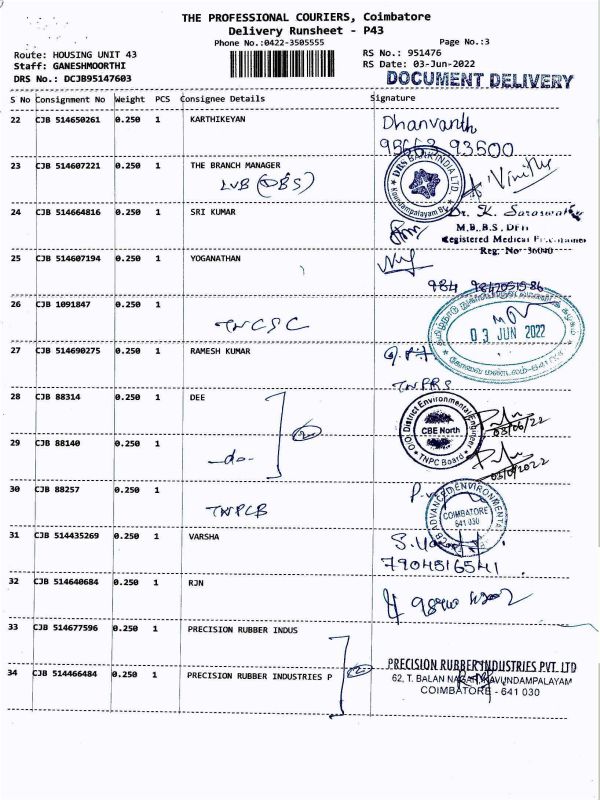 THE PROFESSIONAL COURIERS, Coimbatore
Delivery Runsheet - P43
Phone No.:0422-3505555
Page No.:3
Route: HOUSING UNIT 43
RS No.: 951476
Staff: GANESHMOORTHI
RS Date: 03-Jun-2022
DRS No.: DCJB95147603
DOCUMENT DELIVERY
S No Consignment No Weight PCS Consignee Details Signature
22 CJB 514650261 0.250 1 KARTHIKEYAN Dhanvanth
93500
23 CJB 514607221 0.250 1 THE BRANCH MANAGER
LVB (DBS)
DBS BANK INDIA LTD.
Koundampalayam Br.
24 CJB 514664816 0.250 1 SRI KUMAR Dr. K. Saraswathy
M.B.,B.S.,
Registered Medical Practitioner
Reg. No 36040
25 CJB 514607194 0.250 1 YOGANATHAN
984
26 CJB 1091847 0.250 1
TNCSC
03 JUN 2022
27 CJB 514690275 0.250 1 RAMESH KUMAR
28 CJB 88314 0.250 1 DEE
2
O/O District Environmental Engineer
CBE North
TNPC Board
03/06/22
29 CJB 88140 0.250 1
-do-
30 CJB 88257 0.250 1
TNPCB
ADVANCED ENVIRONMENTA
COIMBATORE
641 030
31 CJB 514435269 0.250 1 VARSHA
7904516541
32 CJB 514640684 0.250 1 RJN
33 CJB 514677596 0.250 1 PRECISION RUBBER INDUS
2
34 CJB 514466484 0.250 1 PRECISION RUBBER INDUSTRIES P
PRECISION RUBBER INDUSTRIES PVT. LTD
62, T. BALAN NAGAR, KAVUNDAMPALAYAM
COIMBATORE - 641 030